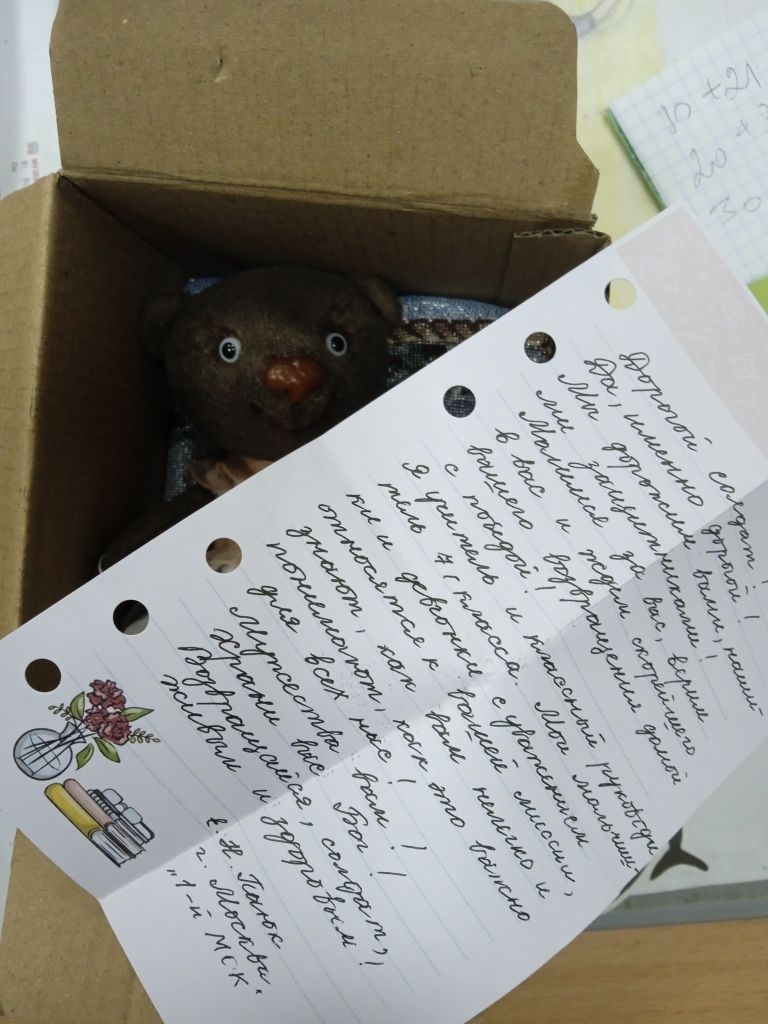 Дорогой солдат!
Да, именно дорогой!
Мы дорожим вами, наши-
ми защитниками!
Молимся за вас, верим
в вас и ждем скорейшего
вашего возвращения домой
с победой!
Я учитель и классный руководи-
тель 7 класса. Мои мальчиш-
ки и девчонки с уважением
относятся к вашей миссии,
знают, как вам нелегко и
понимают, как это важно
для всех нас!
Мужества вам!
Храни вас Бог!
Возвращайся, солдат,
живым и здоровым!
Е. Н.
г. Москва.
"1-й МСК"
10 + 21
20 +
30